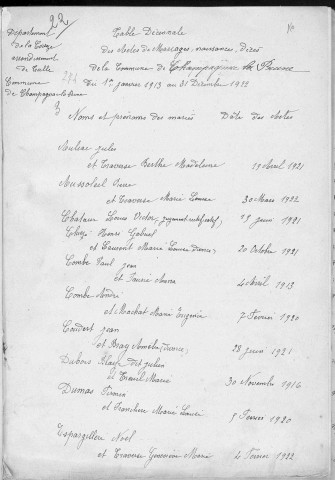 22
Département
de la Corrèze
arrondissement
de Tulle
Commune
de Champagnac-la-Prune
Table Décennale
des Actes de Mariages, naissances, décès
de la Commune de Champagnac la Prune
Du 1er janvier 1913 au 31 Décembre 1922
Noms et prénoms des mariés Date des Actes
jules
et Traverse Berthe Madeleine 19 Avril 1921
Mussolsel
et Traverse Marie Louise 30 Mars 1922
Chataur Louis Victor, jugement rectificatif 25 juin 1921
Henri Gabriel
et Marie Louise 20 Octobre 1921
Combe Paul jean
et Faurie Anna 4 Avril 1913
Combe André
et Machat Marie Eugénie 7 Février 1920
Coudert jean
et Bray Amélie 28 juin 1921
Dubois dit julien
et Marie 30 Novembre 1916
Dumas Firmin
et Marie Louise 5 Février 1920
Espargilière Noël
et Traverse Geneviève Marie 4 Février 1922